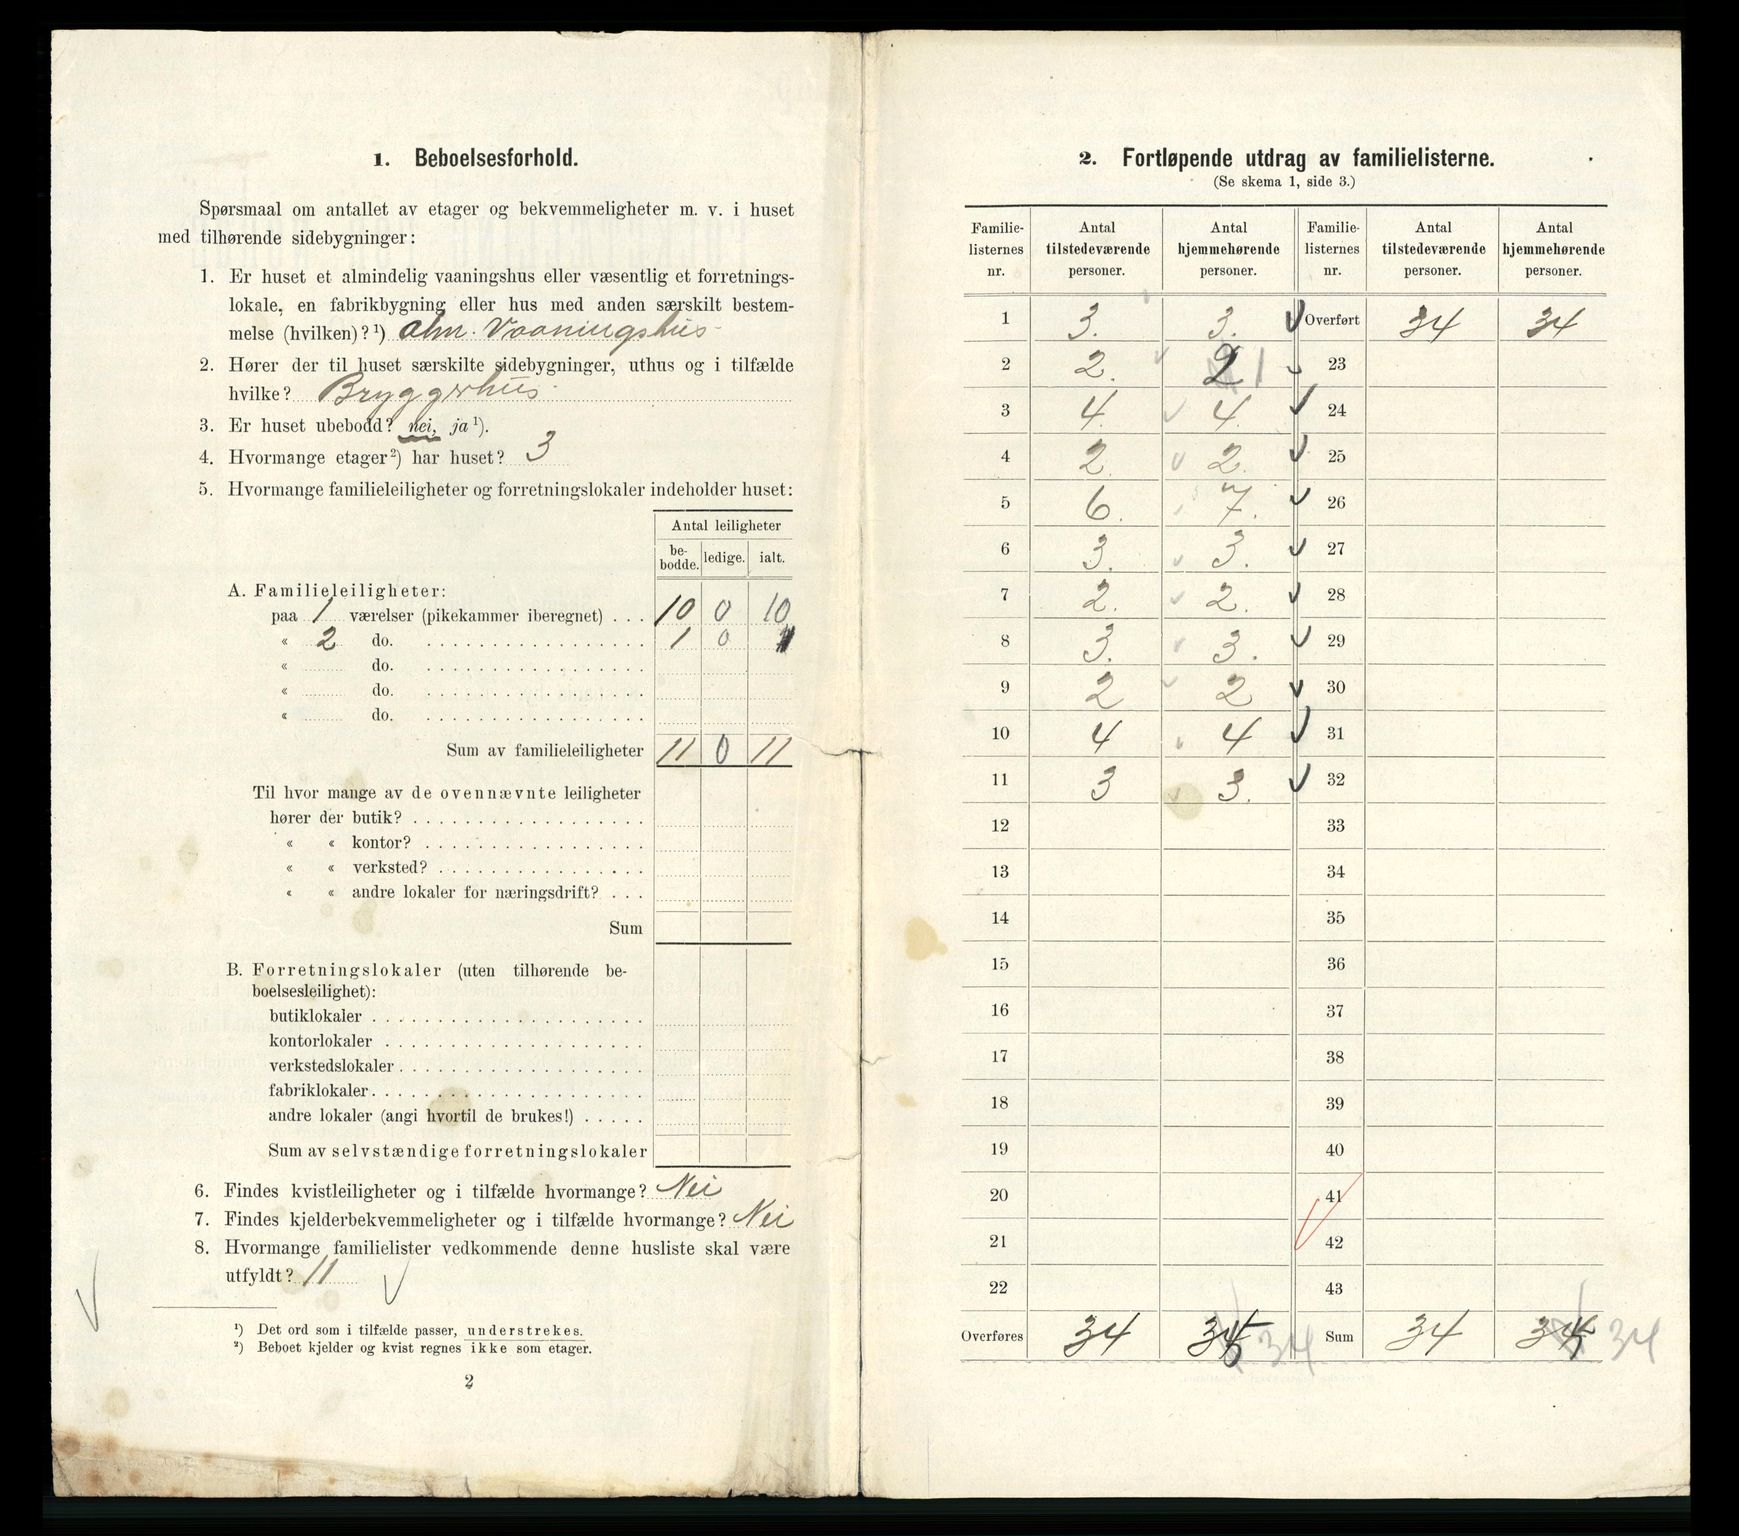 1. Beboelsesforhold.
Spørsmaal om antallet av etager og bekvemmeligheter m. v. i huset
med tilhørende sidebygninger:
1. Er huset et almindelig vaaningshus eller væsentlig et forretnings-
lokale, en fabrikbygning eller hus med anden særskilt bestem-
melse (hvilken)? ¹) alm. Vaaningshus
2. Hører der til huset særskilte sidebygninger, uthus og i tilfælde
hvilke? Bryggerhus
3. Er huset ubebodd? nei, ja ¹).
4. Hvormange etager ²) har huset? 3
5. Hvormange familieleiligheter og forretningslokaler indeholder huset:
Antal leiligheter
be-bodde. ledige. ialt.
A. Familieleiligheter:
paa 1 værelser (pikekammer iberegnet) . . . 10 0 10
« 2 do. 1 0 1
« do.
« do.
« do.
Sum av familieleiligheter 11 0 11
Til hvor mange av de ovennævnte leiligheter
hører der butik?
« « kontor?
« « verksted?
« « andre lokaler for næringsdrift? . . .
Sum
B. Forretningslokaler (uten tilhørende be-
boelsesleilighet):
butiklokaler
kontorlokaler
verkstedslokaler
fabriklokaler
andre lokaler (angi hvortil de brukes!)
Sum av selvstændige forretningslokaler
6. Findes kvistleiligheter og i tilfælde hvormange? Nei
7. Findes kjelderbekvemmeligheter og i tilfælde hvormange? Nei
8. Hvormange familielister vedkommende denne husliste skal være
utfyldt? 11
¹) Det ord som i tilfælde passer, understrekes.
²) Beboet kjelder og kvist regnes ikke som etager.
2
2. Fortløpende utdrag av familielisterne.
(Se skema 1, side 3.)
Familie- Antal Antal Familie- Antal Antal
listernes tilstedeværende hjemmehørende listernes tilstedeværende hjemmehørende
nr. personer. personer. nr. personer. personer.
1 3. 3. Overført 34 34
2 2. 2 1 23
3 4. 4. 24
4 2. 2. 25
5 6. 7. 26
6 3. 3. 27
7 2. 2. 28
8 3. 3. 29
9 2 2 30
10 4 4 31
11 3 3. 32
12 33
13 34
14 35
15 36
16 37
17 38
18 39
19 40
20 41
21 42
22 43
Overføres 34 35 34 Sum 34 35 34